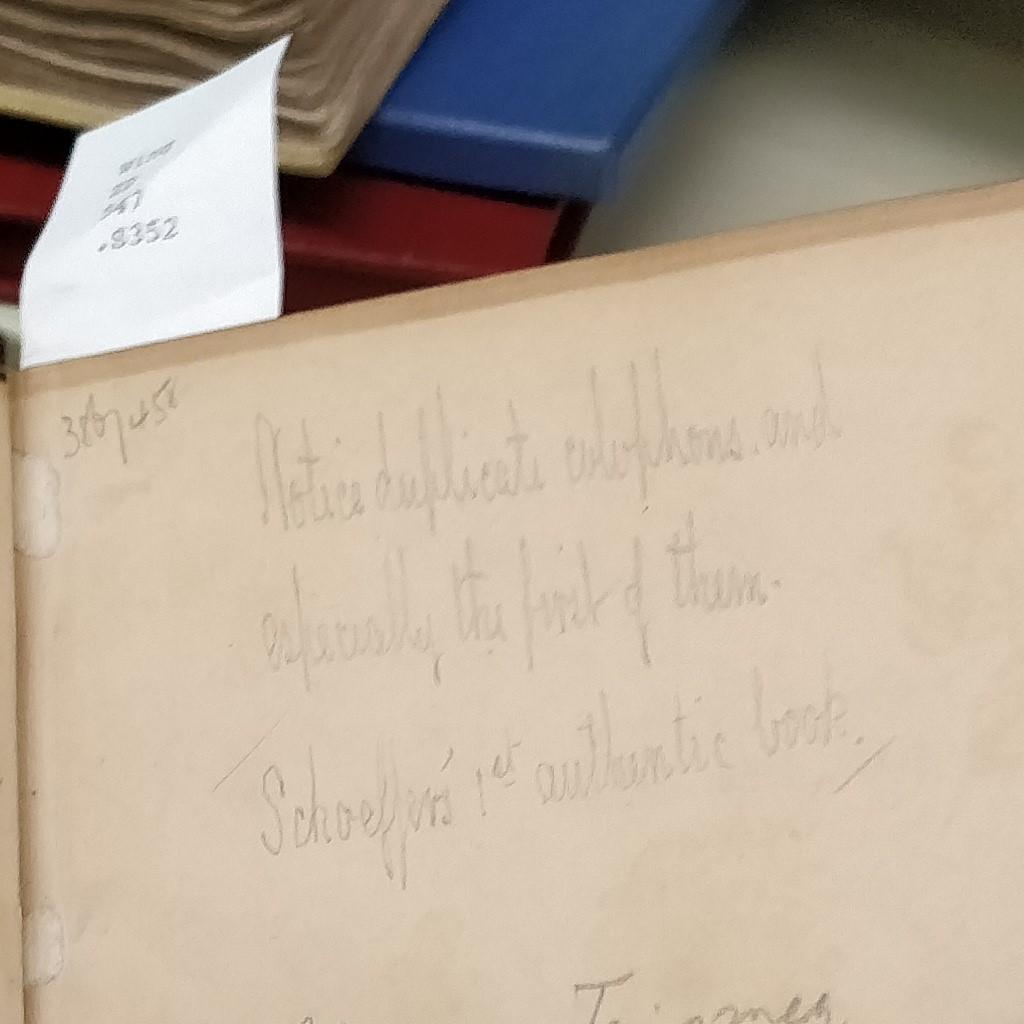 .8352
Notice duplicate colophons and
especially the first of them.
Schoeffer's 1st authentic book.